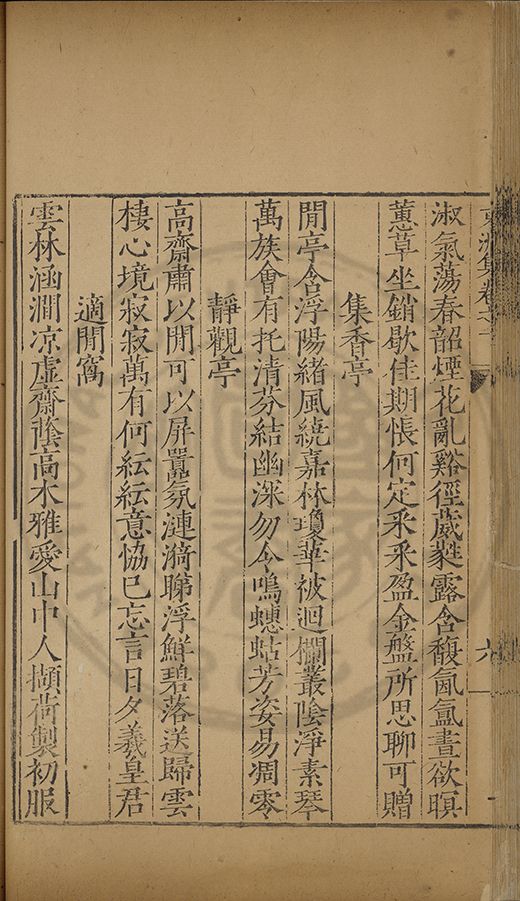 淑氣蕩春韶煙花亂谿徑葳蕤露含馥氤氳晝欲暝
蕙草坐銷歇佳期悵何定采采盈金盤所思聊可贈
集香亭
閒亭含浮陽緒風繞嘉林瓊蕐被迴欄叢陰淨素琴
萬族會有托清芬結幽深勿令鳴蟪蛄芳姿易凋零
靜觀亭
高齋肅以閒可以屏囂氛漣漪睇浮鮮碧落送歸雲
棲心境寂寂萬有何紜紜意恊已忘言日夕羲皇君
適閒窩
雲林涵澗凉虛齋蔭高木雅愛山中人擷荷製初服